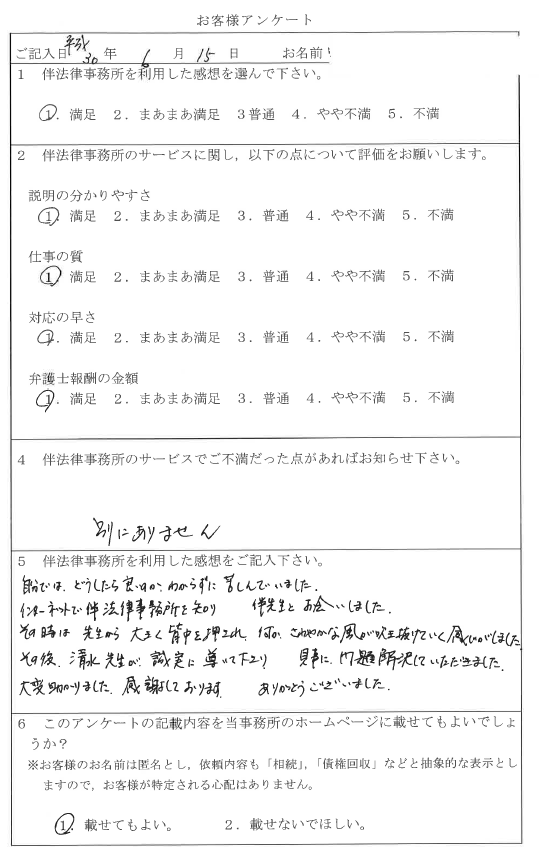 お客様アンケート
ご記入日 平成30年 6月 15日 お名前
1 伴法律事務所を利用した感想を選んで下さい。
①. 満足 2. まあまあ満足 3 普通 4. やや不満 5. 不満
2 伴法律事務所のサービスに関し，以下の点について評価をお願いします。
説明の分かりやすさ
①. 満足 2. まあまあ満足 3. 普通 4. やや不満 5. 不満
仕事の質
①. 満足 2. まあまあ満足 3. 普通 4. やや不満 5. 不満
対応の早さ
①. 満足 2. まあまあ満足 3. 普通 4. やや不満 5. 不満
弁護士報酬の金額
①. 満足 2. まあまあ満足 3. 普通 4. やや不満 5. 不満
4 伴法律事務所のサービスでご不満だった点があればお知らせ下さい。
別にありません
5 伴法律事務所を利用した感想をご記入下さい。
自分では、どうしたら良いのか、わからずに苦しんでいました.
インターネットで伴法律事務所を知り 伴先生とお会いしました.
その時は 先生から 大きく背中を押され、何か、さわやかな風が吹き抜けていく感じがしました
その後、清水先生が、誠実に導いて下さり 見事に、問題解決していただきました.
大変助かりました. 感謝しております. ありがとうございました.
6 このアンケートの記載内容を当事務所のホームページに載せてもよいでしょ
うか？
※お客様のお名前は匿名とし，依頼内容も「相続」，「債権回収」などと抽象的な表示とし
ますので，お客様が特定される心配はありません。
①. 載せてもよい。 2. 載せないでほしい。